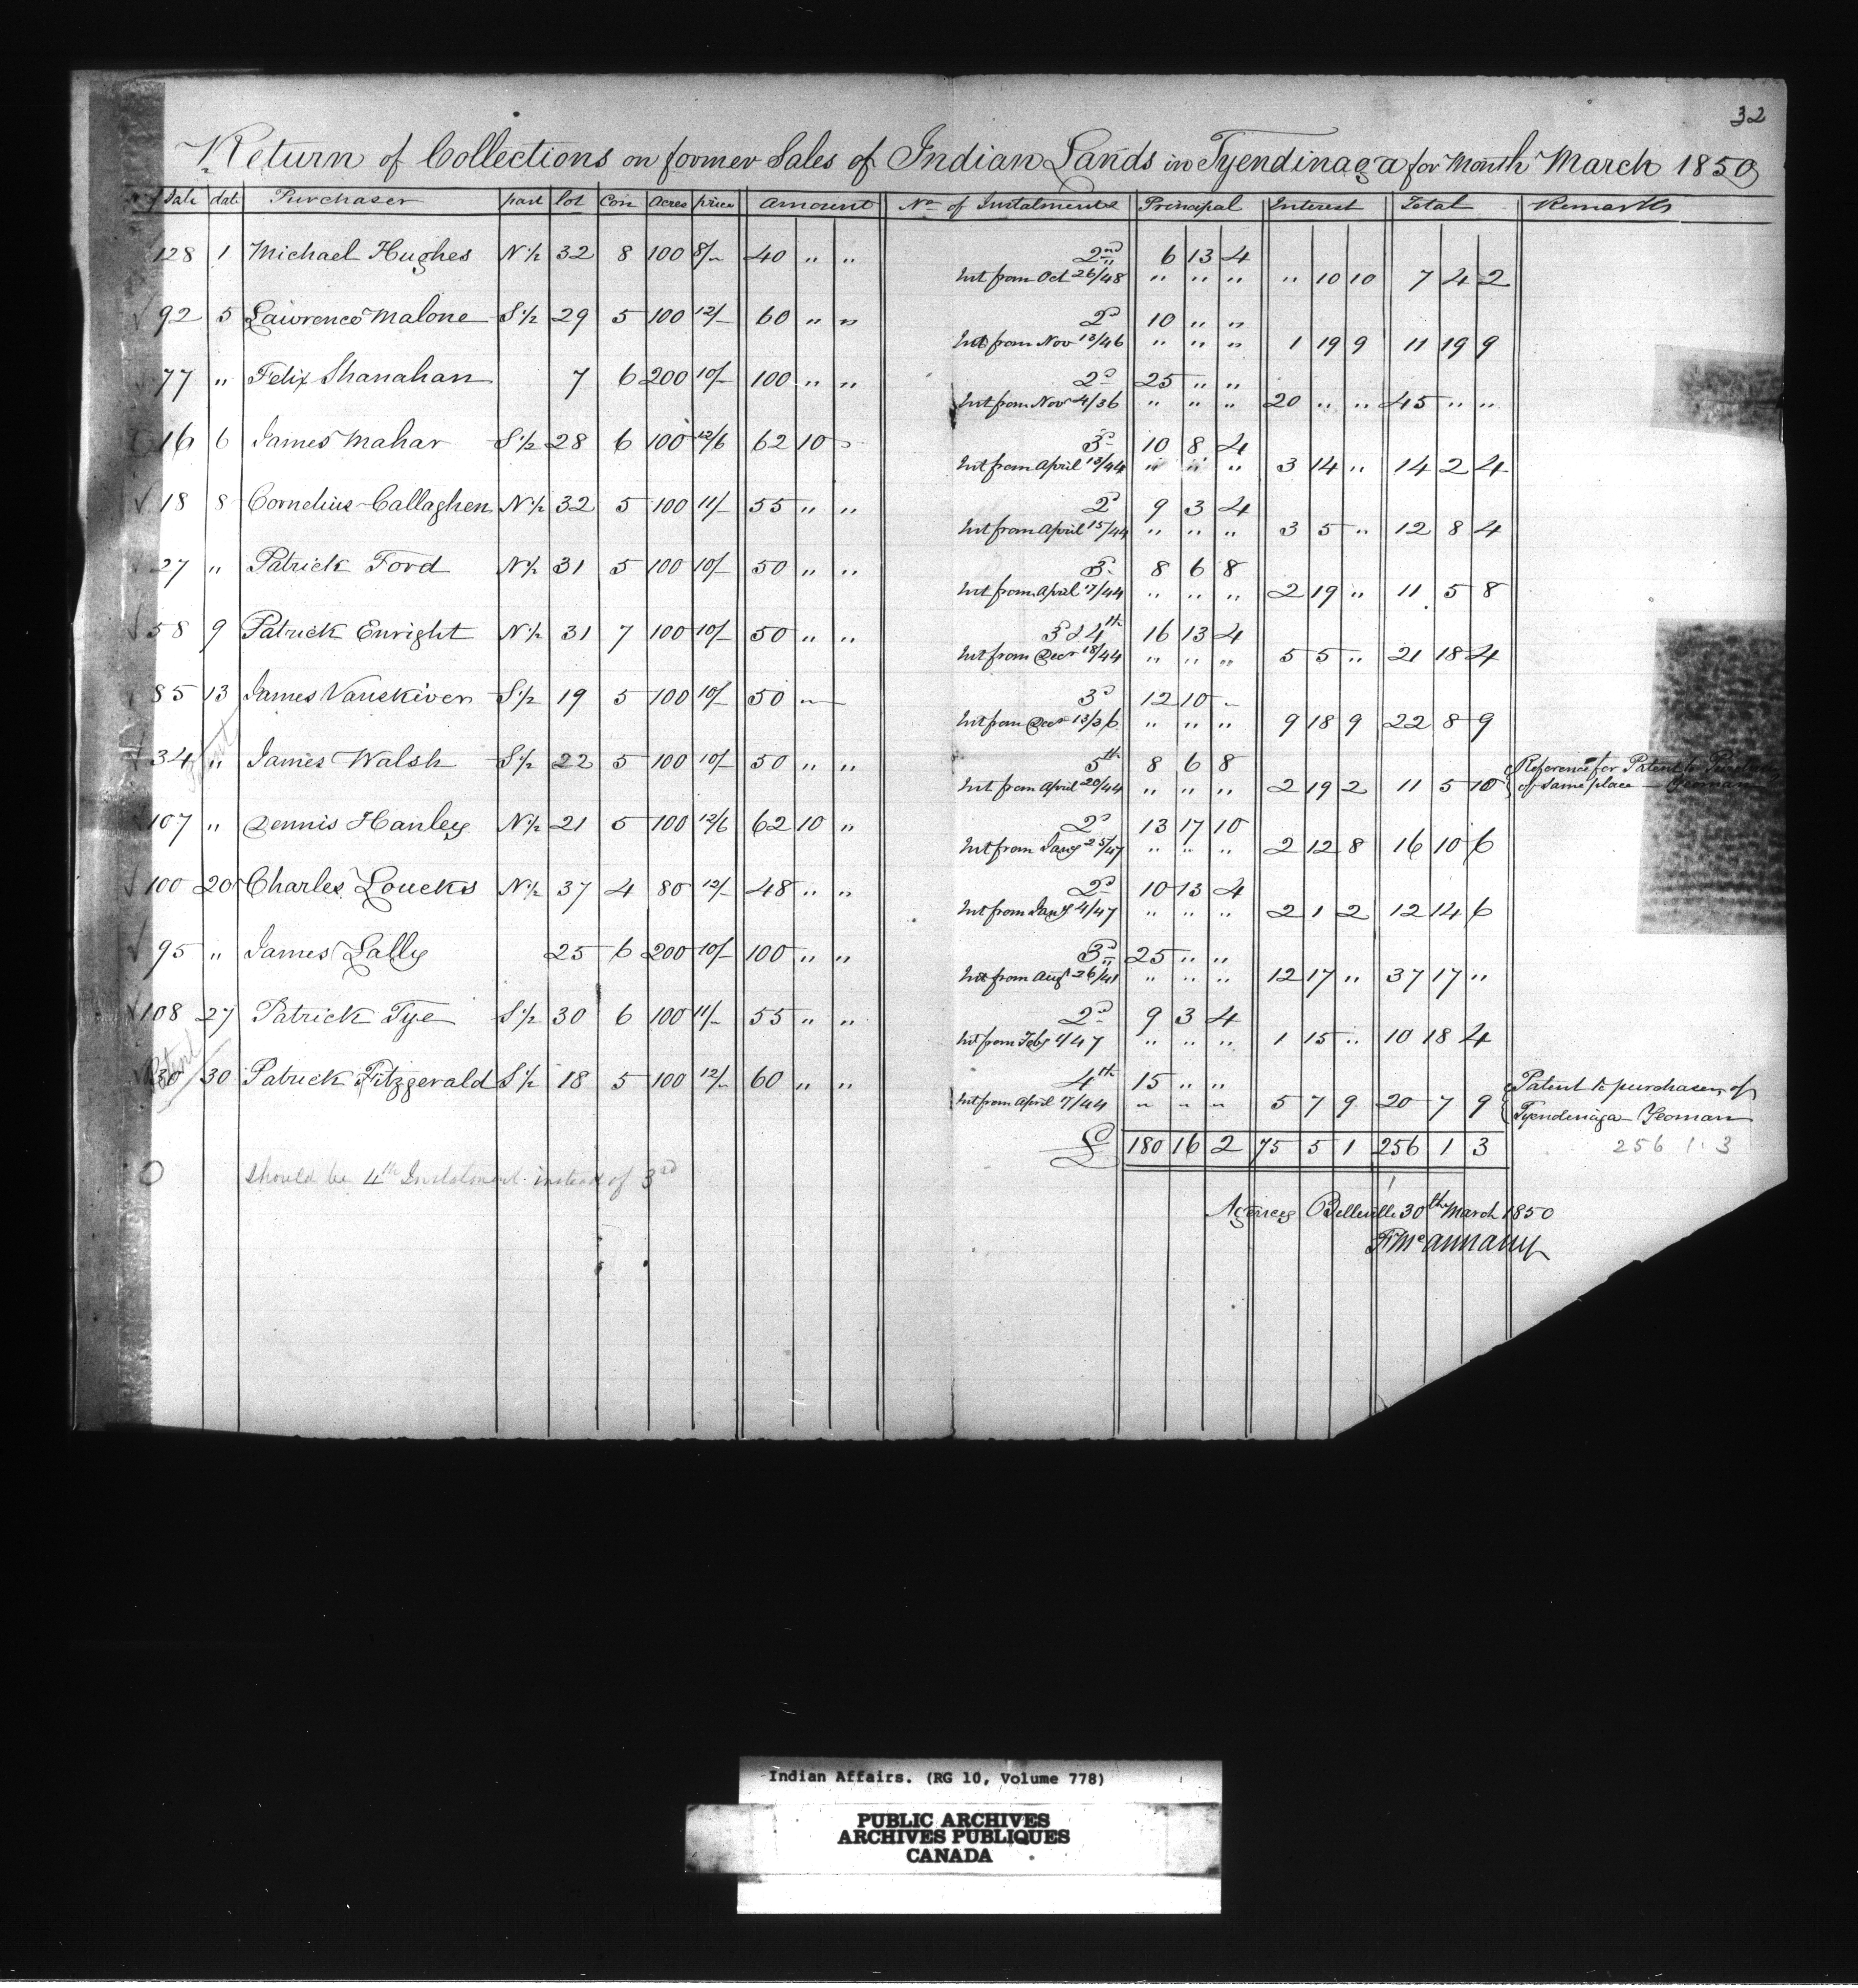 32
Return of Collections on former Sales of Indian Lands in Tyendinaga for Month March 1850
No of Sale date Purchaser part lot Con Acres price Amount No of Instalments Principal Interest Total Remarks
128 1 Michael Hughes N½ 32 8 100 8/- 40 " " 2nd 6 13 4
Int from Oct 26/48 " " " " 10 10 7 4 2
92 5 Lawrence Malone S½ 29 5 100 12/- 60 " " 2d 10 " "
Int from Nov 13/46 " " " 1 19 9 11 19 9
77 " Felix Shanahan 7 6 200 10/- 100 " " 2d 25 " "
Int from Nov 4/36 " " " 20 " " 45 " "
16 6 James Mahar S½ 28 6 100 12/6 62 10 " 3d 10 8 4
Int from April 13/44 " " " 3 14 " 14 2 4
18 8 Cornelius Callaghen N½ 32 5 100 11/- 55 " " 2d 9 3 4
Int from April 15/44 " " " 3 5 " 12 8 4
27 " Patrick Ford N½ 31 5 100 10/- 50 " " 3d 8 6 8
Int from April 7/44 " " " 2 19 " 11 5 8
58 9 Patrick Enright N½ 31 7 100 10/- 50 " " 3d 4th 16 13 4
Int from Decr 18/44 " " " 5 5 " 21 18 4
85 13 James Vanskiver S½ 19 5 100 10/- 50 " 3d 12 10 "
Int from Decr 13/36 " " " 9 18 9 22 8 9
34 " James Walsh S½ 22 5 100 10/- 50 " " 5th 8 6 8 Reference for Patent to
Int from April 20/44 " " " 2 19 2 11 5 10 of same place — Yeoman
107 " Dennis Hanley N½ 21 5 100 12/6 62 10 " 2d 13 17 10
Int from Jany 25/47 " " " 2 12 8 16 10 6
100 20 Charles Loucks N½ 37 4 80 12/- 48 " " 2d 10 13 4
Int from Jany 4/47 " " " 2 1 2 12 14 6
95 " James Lally 25 6 200 10/- 100 " " 3d 25 " "
Int from Augt 26/41 " " " 12 17 " 37 17 "
108 27 Patrick Tye S½ 30 6 100 11/- 55 " " 2d 9 3 4
Int from Feby 4/47 " " " 1 15 " 10 18 4
Patent
30 30 Patrick Fitzgerald S½ 18 5 100 12/- 60 " " 4th 15 " " Patent to purchaser of
Int from April 7/44 " " " 5 7 9 20 7 9 Tyendenaga Yeoman
£ 180 16 2 75 5 1 256 1 3 256 1 3
O should be 4th Instalment instead of 3rd
Agency Belleville 30th March 1850
F McAnnany
Indian Affairs. (RG 10, Volume 778)
PUBLIC ARCHIVES
ARCHIVES PUBLIQUES
CANADA